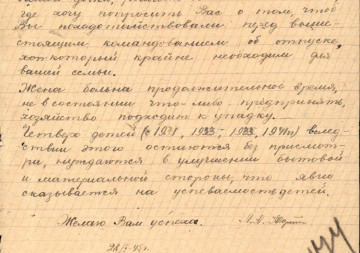 где хочу попросить Вас о том, чтоб
Вы походатайствовали перед выше-
стоящим командованием об отпуске,
который крайне необходим для
вашей семьи.
Жена больна продолжительное время,
не в состоянии что-либо предпринять,
хозяйство подходит к упадку.
Четверо детей (с 1931, 1933, 1938, 1941г) вслед-
ствии этого остаются без присмот-
ра, нуждаются в улучшении бытовой
и материальной стороны, что явно
сказывается на успеваемость детей.
Желаю Вам успеха.